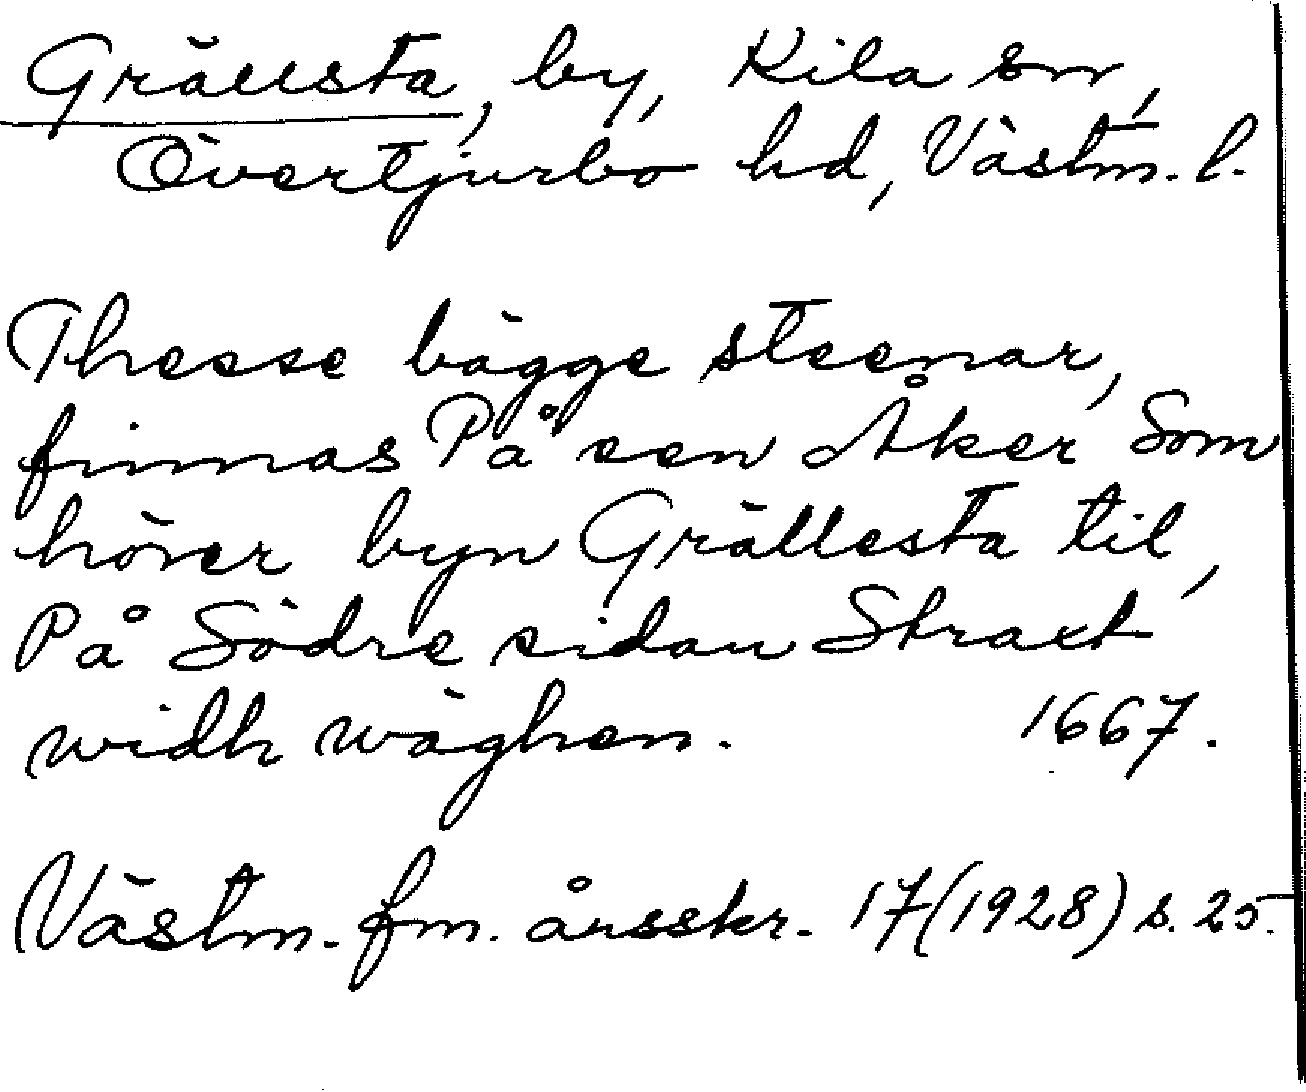 Grällsta, by, Kila sn,
Övertjurbo hd, Västm. l.
Thesse bägge steenar,
finnas På een Åker Som
hörer byn Grällesta til,
På Södre sidan Straxt
widh wäghen. 1667.
Västm. fm. årsskr. 17(1928) s. 25.